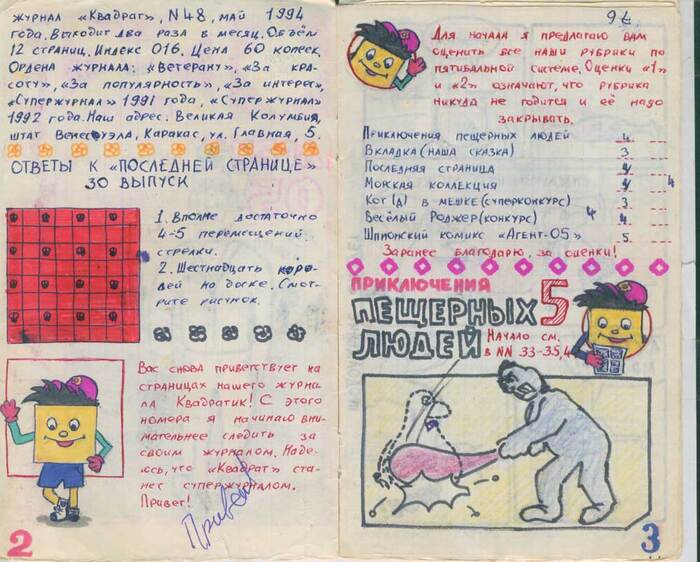 журнал «Квадрат», N 48, май 1994
года. Выходит два раза в месяц. Объём
12 страниц. Индекс 016. Цена 60 копеек.
Ордена журнала: «Ветерану», «За кра-
соту», «За популярность», «За интерес»,
«Супержурнал» 1991 года, «Супержурнал»
1992 года. Наш адрес: Великая Колумбия,
штат Венесуэла, Каракас, ул. Главная, 5.
ОТВЕТЫ К «ПОСЛЕДНЕЙ СТРАНИЦЕ»
30 ВЫПУСК
1. Вполне достаточно
4-5 перемещений
стрелки.
2. Шестнадцать коро-
лей на доске. Смот-
рите рисунок.
Вас снова приветствует на
страницах нашего журна-
ла Квадратик! С этого
номера я начинаю вни-
мательнее следить за
своим журналом. Наде-
юсь, что «Квадрат» ста-
нет супержурналом.
Привет!
Привет
2
Для начала я предлагаю вам
оценить все наши рубрики по
пятибальной системе. Оценки «1»
и «2» означают, что рубрика
никуда не годится и её надо
закрывать.
Приключения пещерных людей 4
Вкладка (наша сказка) 3
Последняя страница 4
Морская коллекция 4
Кот (д) в мешке (суперконкурс) 3
Весёлый Роджер (конкурс) 4 4
Шпионский комикс «Агент-05» 5
Заранее благодарю, за оценки!
ПРИКЛЮЧЕНИЯ
ПЕЩЕРНЫХ 5
ЛЮДЕЙ
Начало см.
в NN 33-35,4
3